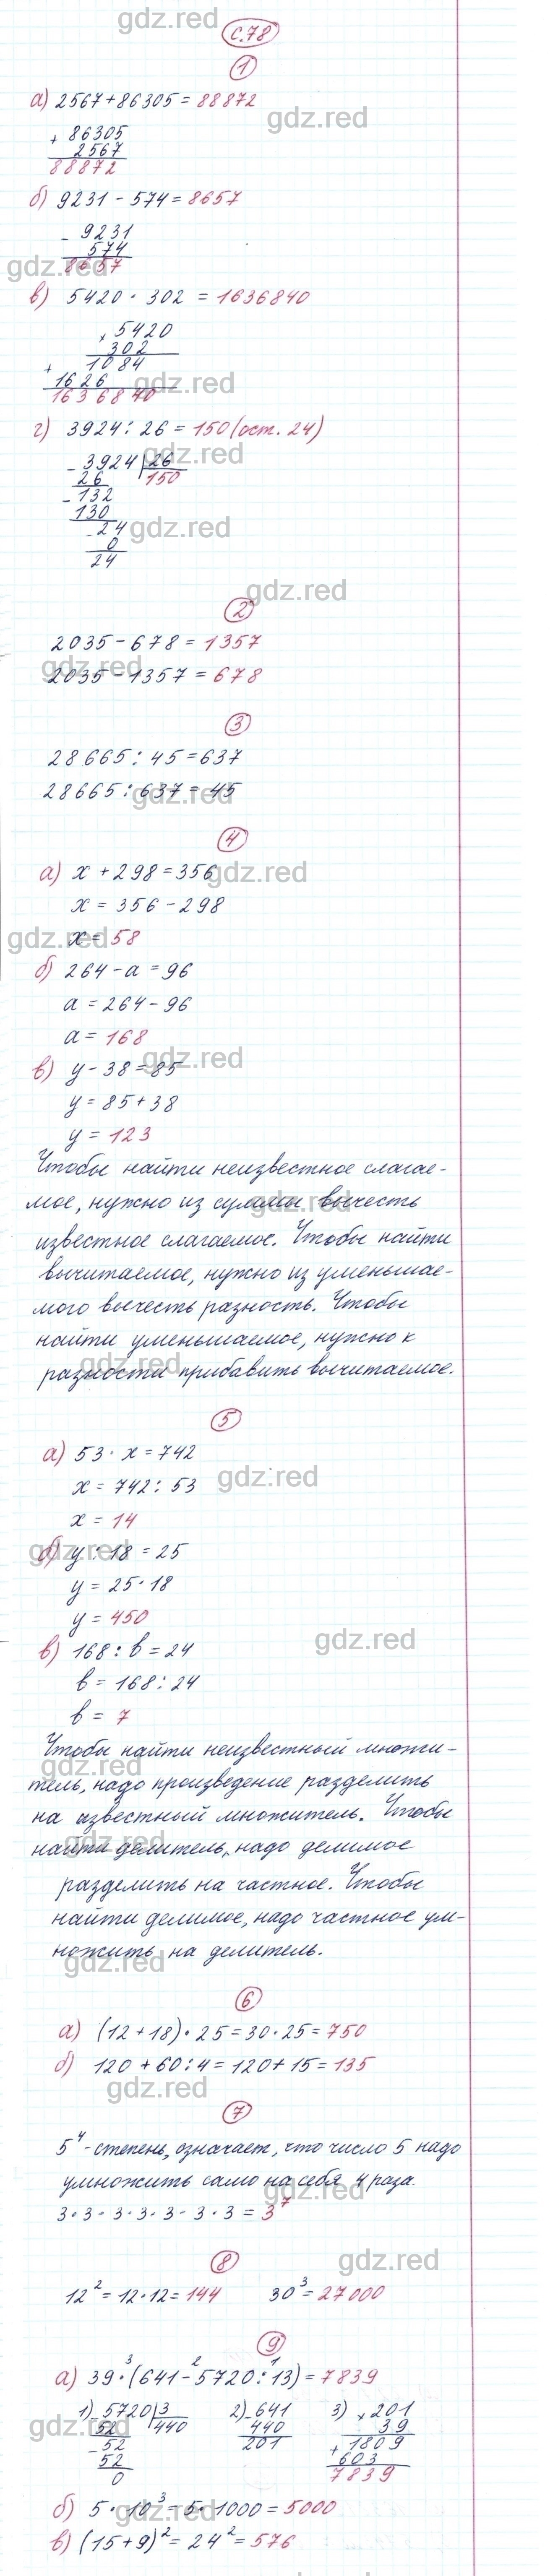 gdz.red
с.78
1
а) 2567+86305=88872
gdz.red
+ 86305
2567
88872
б) 9231-574=8657
- 9231
574
gdz.red
8657
в) 5420·302=1636840
× 5420
302
1084
+
1626
gdz.red
1636840
г) 3924:26=150(ост. 24)
gdz.red
- 3924 26
26 150
- 132
130
gdz.red
- 24
0
24
gdz.red
2
2035-678=1357
gdz.red
2035-1357=678
3
28665:45=637
28665:637=45
gdz.red
4
а) x+298=356
gdz.red
x=356-298
gdz.red
x=58
б) 264-a=96
a=264-96
a=168
gdz.red
в) y-38=85
y=85+38
y=123
Чтобы найти неизвестное слагае-
мое, нужно из суммы вычесть
gdz.red
известное слагаемое. Чтобы найти
вычитаемое, нужно из уменьшае-
мого вычесть разность. Чтобы
найти уменьшаемое, нужно к
gdz.red
разности прибавить вычитаемое.
5
а) 53·x=742
gdz.red
x=742:53
x=14
gdz.red
б) y:18=25
y=25·18
y=450
gdz.red
в) 168:b=24
b=168:24
b=7
Чтобы найти неизвестный множи-
gdz.red
тель, надо произведение разделить
на известный множитель. Чтобы
gdz.red
найти делитель, надо делимое
разделить на частное. Чтобы
найти делимое, надо частное ум-
ножить на делитель.
gdz.red
6
а) (12+18)·25=30·25=750
б) 120+60:4=120+15=135
gdz.red
7
5⁴-степень, означает, что число 5 надо
умножить само на себя 4 раза.
gdz.red
3·3·3·3·3·3·3=3⁷
8
gdz.red
12²=12·12=144 30³=27000
9
3 2 1
а) 39·(641-5720:13)=7839
1) 5720 3 2) -641 3) × 201
gdz.red
- 52 440 440 39
- 52 201 + 1809
52 603
0 7839
б) 5·10³=5·1000=5000
gdz.red
в) (15+9)²=24²=576
gdz.red